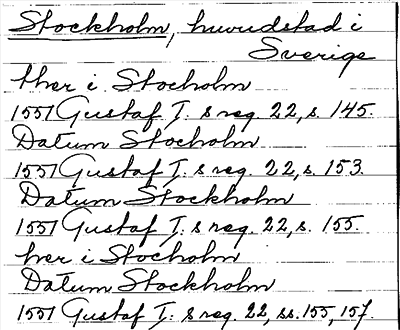 Stockholm, huvudstad i
Sverige
ther i Stocholm
1551 Gustaf I. s reg. 22, s. 145.
Datum Stocholm
1551 Gustaf I. s reg. 22, s. 153.
Datum Stockholm
1551 Gustaf I. s reg. 22, s. 155.
her i Stocholm
Datum Stockholm
1551 Gustaf I. s reg. 22, ss. 155, 157.